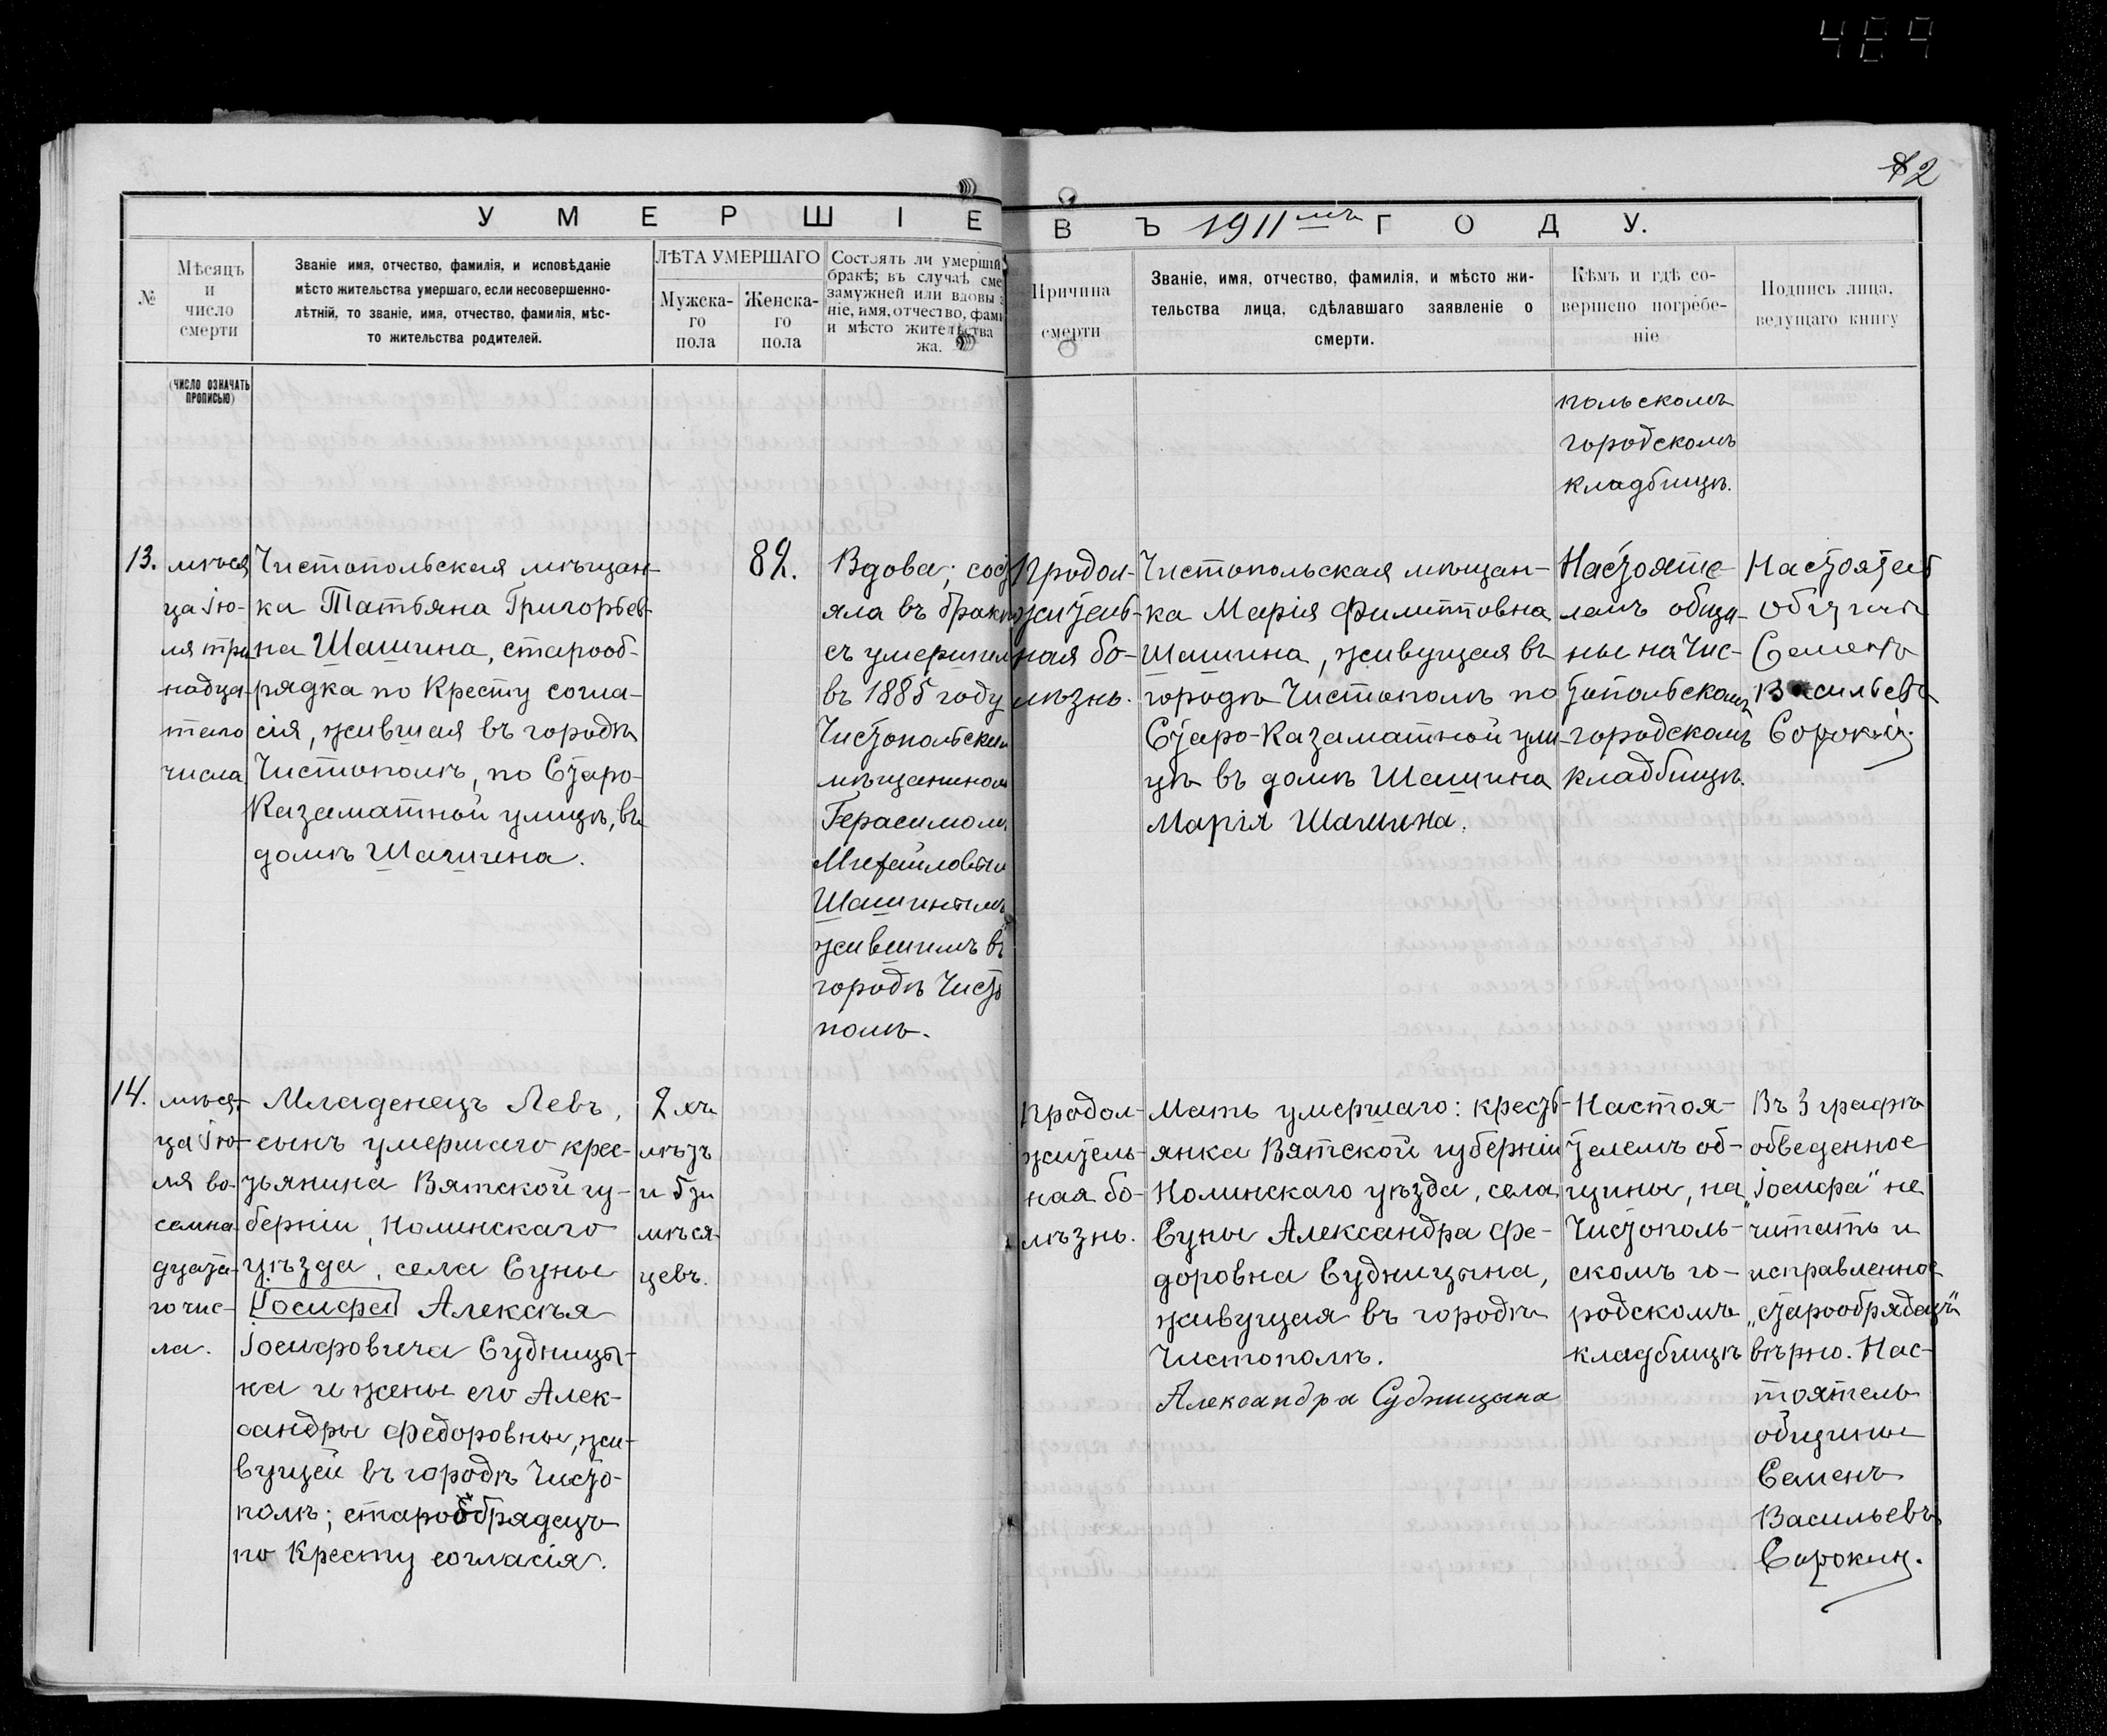 489
82
УМЕРШІЕ
ВЪ 1911мъ ГОДУ.
№
Мѣсяцъ
и
число
смерти
(ЧИСЛО ОЗНАЧАТЬ
ПРОПИСЬЮ)
Званіе имя, отчество, фамилія, и исповѣданіе
мѣсто жительства умершаго, если несовершенно-
лѣтній, то званіе, имя, отчество, фамилія, мѣс-
то жительства родителей.
ЛѢТА УМЕРШАГО
Мужска-
го
пола
Женска-
го
пола
Состоялъ ли умершій
бракѣ; въ случаѣ сме
замужней или вдовы з
ніе, имя, отчество, фами
и мѣсто жительства
жа.
Причина
смерти
Званіе, имя, отчество, фамилія, и мѣсто жи-
тельства лица, сдѣлавшаго заявленіе о
смерти.
Кѣмъ и гдѣ со-
вершено погребе-
ніе
Подпись лица,
ведущаго книгу
польскомъ
городскомъ
кладбищѣ.
13.
мѣся
ца Ію-
ля три
надца-
таго
числа
Чистопольская мѣщан-
ка Татьяна Григорьев-
на Шашина, старооб-
рядка по Кресту согла-
сія, жившая въ городѣ
Чистополѣ, по Старо-
Казаматной улицѣ, въ
домѣ Шашина.
82.
Вдова; сост
яла въ бракѣ
съ умершим
въ 1885 году
Чистопольским
мѣщанином
Герасимом
Михайлович
Шашинымъ
жившимъ въ
городѣ Чисто
полѣ.
Продол-
житель-
ная бо-
лѣзнь.
Чистопольская мѣщан-
ка Марія Филипповна
Шашина, живущая въ
городѣ Чистополѣ по
Старо-Казаматной ули-
цѣ въ домѣ Шашина
Марія Шашина.
Настояте-
лемъ общи-
ны на Чис-
топольскомъ
городскомъ
кладбищѣ.
Настоятель
общины
Семенъ
Васильевъ
Сорокин.
14.
мѣся-
ца Ію-
ля во-
семна-
дцата-
го чис-
ла.
Младенецъ Левъ,
сынъ умершаго крес-
тьянина Вятской гу-
берніи, Нолинскаго
уѣзда, села Суны
Іосифа Алексѣя
Іосифовича Судницы-
на и жены его Алек-
сандры Федоровны, жи-
вущей въ городѣ Чисто-
полѣ; старообрядецъ
по Кресту согласія.
2 хъ
лѣтъ
и 6 ти
мѣся-
цевъ.
Продол-
житель-
ная бо-
лѣзнь.
Мать умершаго: кресть-
янка Вятской губерніи
Нолинскаго уѣзда, села
Суны Александра Фе-
доровна Судницына,
живущая въ городѣ
Чистополѣ.
Александра Судницына
Настоя-
телемъ об-
щины, на
Чистополь-
скомъ го-
родскомъ
кладбищѣ
Въ 3 графѣ
обведенное
„Іосифа" не
читать и
исправленное
„старообрядецъ"
вѣрно. Нас-
тоятель
общины
Семенъ
Васильевъ
Сорокин.